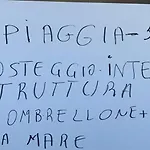 PIAGGIA-S
OSTEGGIO-INTE
TRUTTURA
OMBRELLONE+
A MARE